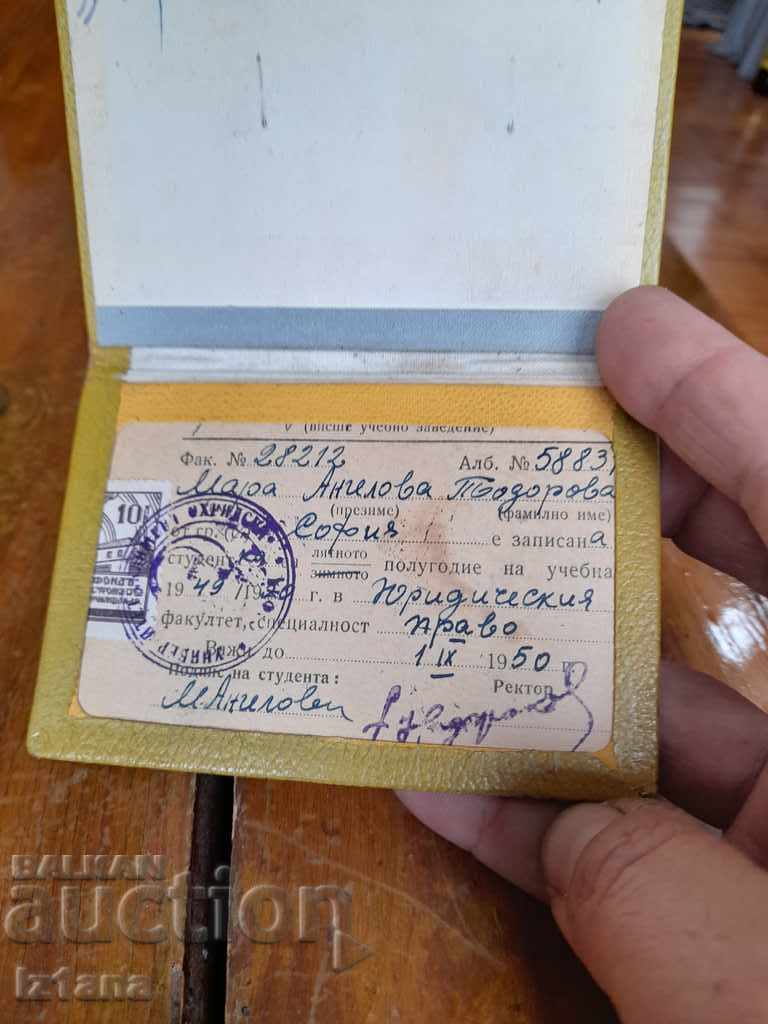 (висше учебно заведение)
Фак. № 28212 Алб. № 5883
Мара Ангелова Тодорова
(презиме) (фамилно име)
от гр. София е записана
студент лятното
зимното полугодие на учебна
1949/19 г. в Юридическия
факултет, специалност право
Важи до 1 IX 1950 г.
Подпис на студента: Ректор
М. Ангелова
10
BALKAN
auction
Iztana